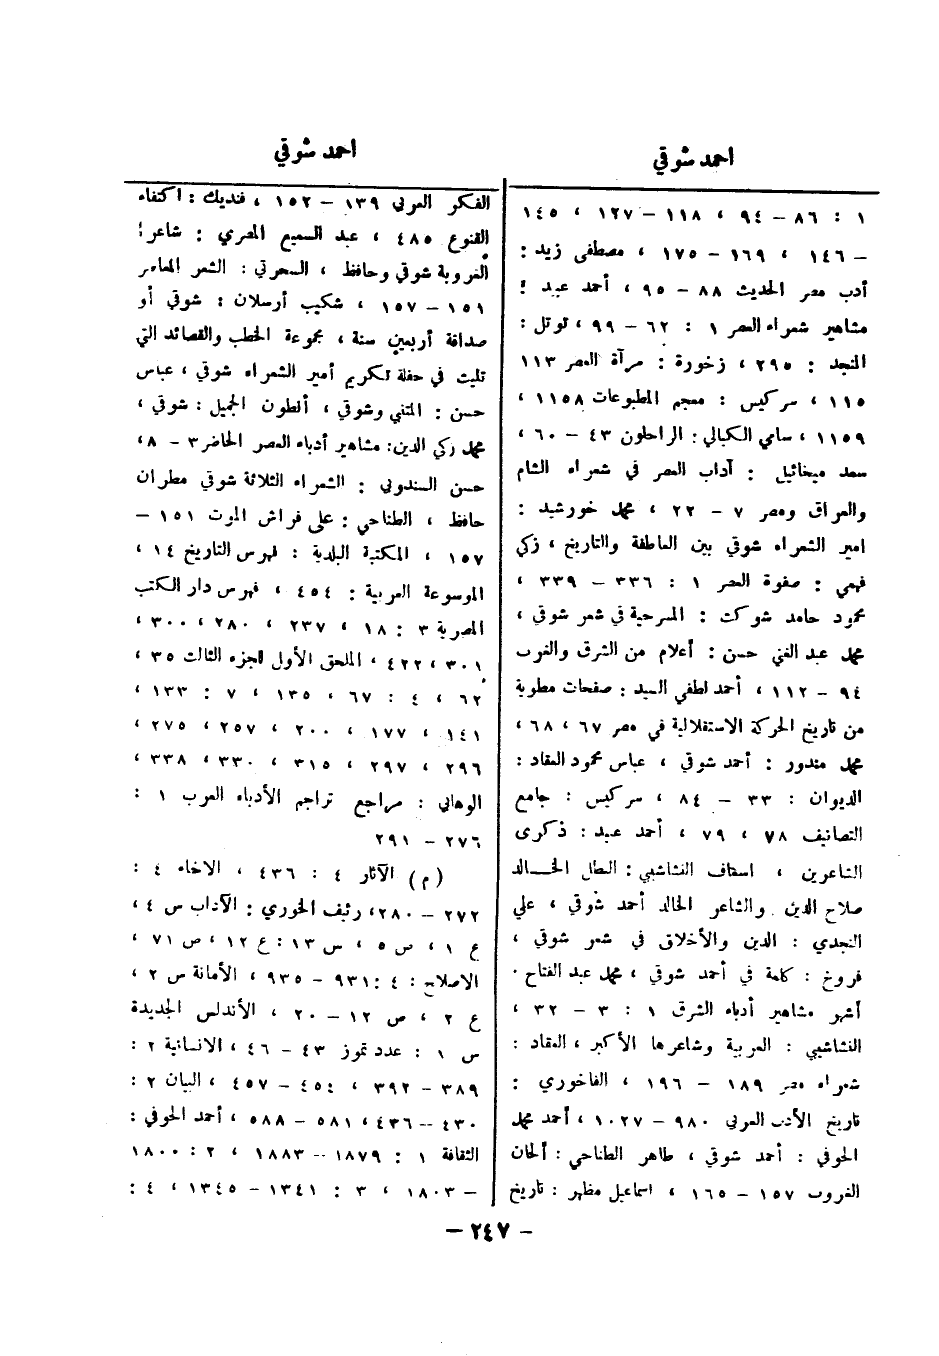 احمد شوقي
١ : ٨٦ – ٩٤ ، ١١٨ – ١٢٧ ، ١٤٥
– ١٤٦ ، ١٦٩ – ١٧٥ ، مصطفى زيد :
أدب مصر الحديث ٨٨ – ٩٥ ، أحمد عبيد :
مشاهير شعراء العصر ١ : ٦٢ – ٩٩ ، توتل :
المنجد : ٢٩٥ ، زخورة : مرآة العصر ١١٣
١١٥ ، سركيس : معجم المطبوعات ١١٥٨ ،
١١٥٩ ، سامي الكيالي : الراحلون ٤٣ – ٦٠ ،
سعد ميخائيل : آداب العصر في شعراء الشام
والعراق ومصر ٧ – ٢٢ ، محمد خورشيد :
امير الشعراء شوقي بين العاطفة والتاريخ ، زكي
فهمي : صفوة العصر ١ : ٣٣٦ – ٣٣٩ ،
محمود حامد شوكت : المسرحية في شعر شوقي ،
محمد عبد الغني حسن : أعلام من الشرق والغرب
٩٤ – ١١٢ ، أحمد لطفي السيد : صفحات مطوية
من تاريخ الحركة الاستقلالية في مصر ٦٧ ، ٦٨ ،
محمد مندور : أحمد شوقي ، عباس محمود العقاد :
الديوان : ٣٣ – ٨٤ ، سركيس : جامع
التصانيف ٧٨ ، ٧٩ ، أحمد عبيد : ذكرى
الشاعرين ، اسعاف النشاشيبي : البطل الخالد
صلاح الدين والشاعر الخالد أحمد شوقي ، علي
النجدي : الدين والأخلاق في شعر شوقي ،
فروخ : كلمة في أحمد شوقي ، محمد عبد الفتاح .
أشهر مشاهير أدباء الشرق ١ : ٣ – ٣٢ ،
النشاشيبي : العربية وشاعرها الأكبر ، العقاد :
شعراء مصر ١٨٩ – ١٩٦ ، الفاخوري :
تاريخ الأدب العربي ٩٨٠ – ١٠٢٧ ، أحمد محمد
الحوفي : أحمد شوقي ، طاهر الطناحي : ألحان
الغروب ١٥٧ – ١٦٥ ، اسماعيل مظهر : تاريخ
احمد شوقي
الفكر العربي ١٣٩ – ١٥٢ ، فنديك : اكتفاء
القنوع ٤٨٥ ، عبد السميع المصري : شاعرا
العروبة شوقي وحافظ ، السحرتي : الشعر المعاصر
١٥١ – ١٥٧ ، شكيب أرسلان : شوقي أو
صداقة أربعين سنة ، مجموعة الخطب والقصائد التي
تليت في حفلة تكريم أمير الشعراء شوقي ، عباس
حسن : المتنبي وشوقي ، أنطون الجميل : شوقي ،
محمد زكي الدين : مشاهير أدباء العصر الحاضر ٣ – ٨ ،
حسن السندوبي : الشعراء الثلاثة شوقي مطران
حافظ ، الطناحي : على فراش الموت ١٥١ –
١٥٧ ، المكتبة البلدية : فهرس التاريخ ١٤ ،
الموسوعة العربية : ٤٥٤ ، فهرس دار الكتب
المصرية ٣ : ١٨ ، ٢٣٧ ، ٢٨٠ ، ٣٠٠ ،
٣٠١ ، ٤٢٢ ، الملحق الأول لجزء الثالث ٣٥ ،
٦٢ ، ٤ : ٦٧ ، ١٣٥ ، ٧ : ١٣٣ ،
١٤١ ، ١٧٧ ، ٢٠٠ ، ٢٥٧ ، ٢٧٥ ،
٢٩٦ ، ٢٩٧ ، ٣١٥ ، ٣٣٠ ، ٣٣٨ ،
الوهابي : مراجع تراجم الأدباء العرب ١ :
٢٧٦ – ٢٩١
(م) الآثار ٤ : ٤٣٦ ، الاخاء ٤ :
٢٧٢ – ٢٨٠ ، رئيف الخوري : الآداب س ٤ ،
ع ١ ، ص ٥ ، س ١٣ : ع ١٢ ، ص ٧١ ،
الاصلاح : ٤ : ٩٣١ – ٩٣٥ ، الأمانة س ٢ ،
ع ٢ ، ص ١٢ – ٢٠ ، الأندلس الجديدة
س ١ : عدد تموز ٤٣ – ٤٦ ، الانسانية ٢ :
٣٨٩ – ٣٩٢ ، ٤٥٤ – ٤٥٧ ، البيان ٢ :
٤٣٠ – ٤٣٦ ، ٥٨١ – ٥٨٨ ، أحمد الحوفي :
الثقافة ١ : ١٨٧٩ – ١٨٨٣ ، ٢ : ١٨٠٠
– ١٨٠٣ ، ٣ : ١٣٤١ – ١٣٤٥ ، ٤ :
– ٢٤٧ –